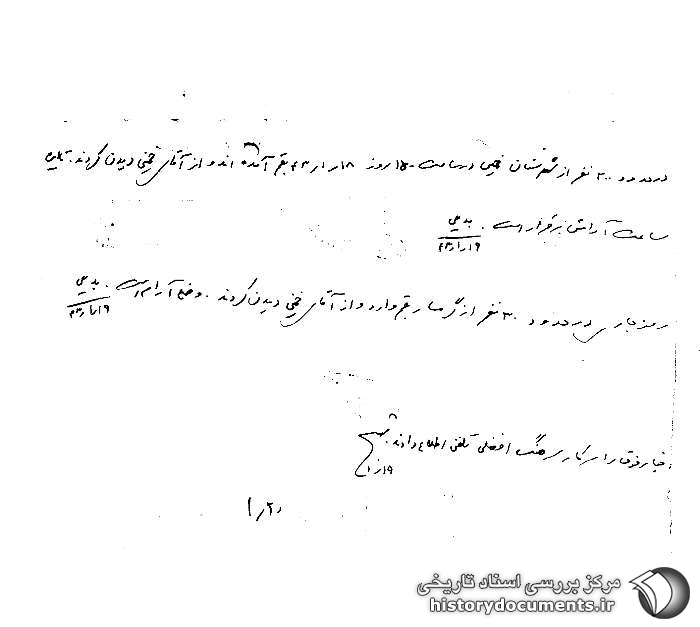 در حدود ۳۰۰ نفر از شهرستان خمین در ساعت ۱۵۰۰ روز ۱۸ر۱ر۴۳ بقم آمده اند و از آقای خمینی دیدن کردند. تا این
ساعت آرامش برقرار است. بدیعی
۱۹ر۱ر۴۳
روز جاری در حدود ۳۰ نفر از گرمسار بقم وارد و از آقای خمینی دیدن کردند. وضع آرام است. بدیعی
۱۹ر۱ر۴۳
اخبار فوق را سرکار سرهنگ افضلی تلفنی اطلاع دادند.
۱۹ر۱
۱ر۲۰
مرکز بررسی اسناد تاریخی
historydocuments.ir